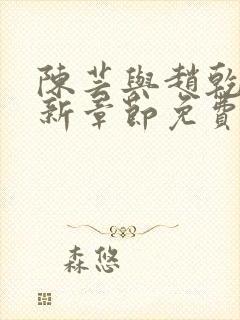 陳芸與趙乾
新章節免費
森悠